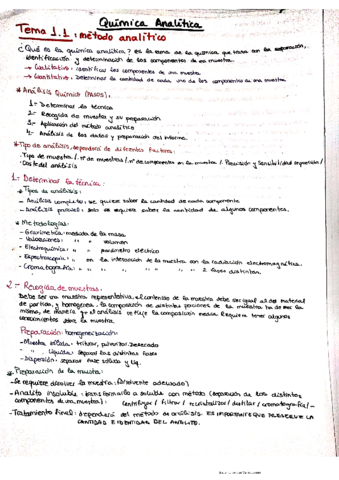 Química Analítica
Tema 1.1: método analítico
¿Qué es la química analítica? es la rama de la química que trata con la separación,
identificación y determinación de los componentes de una muestra.
→ Cualitativo: identificar los componentes de una muestra
→ Cuantitativo: Determinar la cantidad de cada uno de los componentes de una muestra.
* Análisis Químico (PASOS):
1- Determinar la técnica
2- Recogida de muestra y su preparación
3- Aplicación del método analítico
4- Análisis de los datos y preparación del informe.
* Tipo de análisis, dependerá de diferentes factores:
· Tipo de muestra / nº de muestras / nº de componentes en la muestra / Precisión y Sensibilidad requerida /
· Coste del análisis
1- Determinar la técnica:
* Tipos de análisis:
- Análisis completo: se quiere saber la cantidad de cada componente
- Análisis parcial: solo se requiere saber la cantidad de algunos componentes.
* Metodologías:
- Gravimetría: medida de la masa
- Valoraciones: " " volumen
- Electroquímica: " " parámetro eléctrico
- Espectroscopía: " en la interacción de la muestra con la radiación electromagnética.
- Cromatografía: " " " " " " " 2 fases distintas.
2- Recogida de muestras:
Debe ser una muestra representativa, el contenido de la muestra debe ser igual al del material
de partida, y homogénea. La composición de distintas porciones de la muestra ha de ser la
misma, de manera q el análisis refleje la composición media. Requiere tener algunos
conocimientos sobre la muestra.
Preparación: homogeneización:
- Muestra sólida: triturar, pulverizar, desecado
- " líquida: separar las distintas fases
- Dispersión: separar fase sólida y líq.
* Preparación de la muestra:
- Se requiere disolver la muestra: (disolvente adecuado)
- Analito insoluble: transformarlo a soluble con método (separación de los distintos
componentes de una muestra): centrifugar / filtrar / recristalizar / destilar / cromatografía / -
- Tratamiento final: dependerá del método de análisis. ES IMPORTANTE QUE PRESERVE LA
CANTIDAD E IDENTIDAD DEL ANALITO.